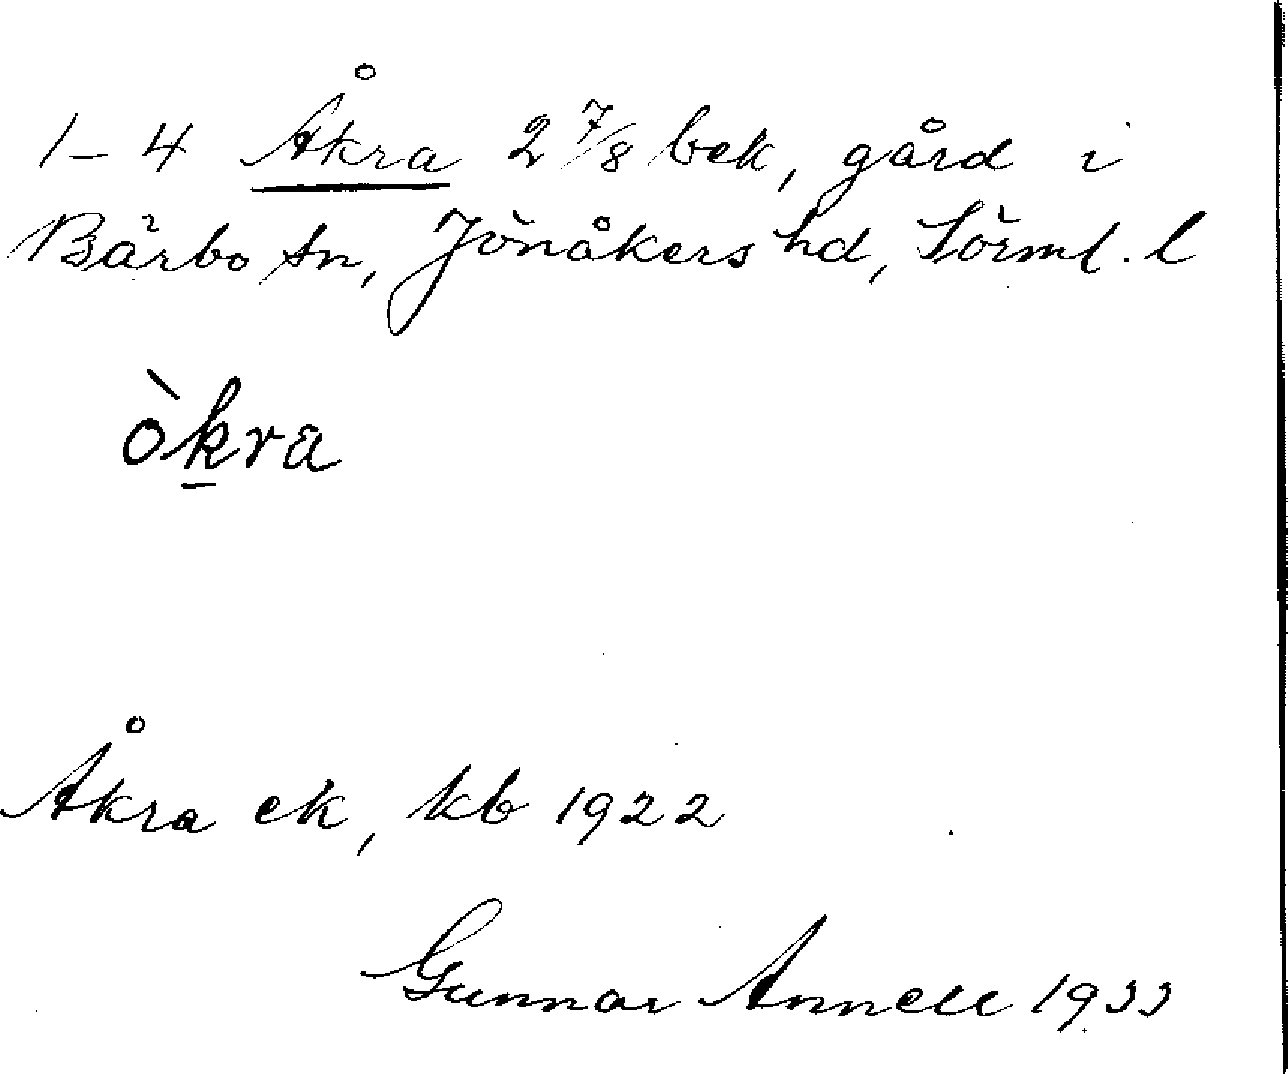 1–4 Åkra 2 7/8 bek, gård i
Bärbo sn, Jönåkers hd, Sörml. l
òk̲ra
Åkra ek, kb 1922
Gunnar Annell 1933